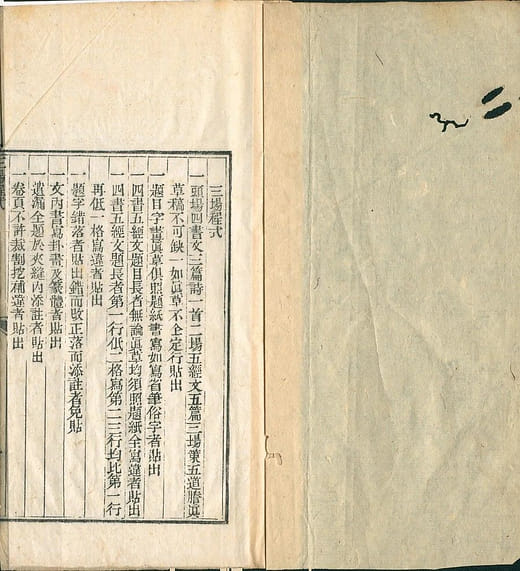 三場程式
一頭場四書文三篇詩一首二場五經文五篇三場策五道謄眞
草稿不可缺一如眞草不全定行貼出
一題目字畫眞草俱照題紙書寫如寫省筆俗字者貼出
一四書五經文題目長者無論眞草均須照題紙全寫違者貼出
一四書五經文題長者第一行低二格寫第二三行均比第一行
再低一格寫違者貼出
一題字錯落者貼出錯而改正落而添註者免貼
一文內書寫卦畫及篆體者貼出
一遺漏全題於夾縫內添註者貼出
一卷頁不許裁割挖補違者貼出
三場程式